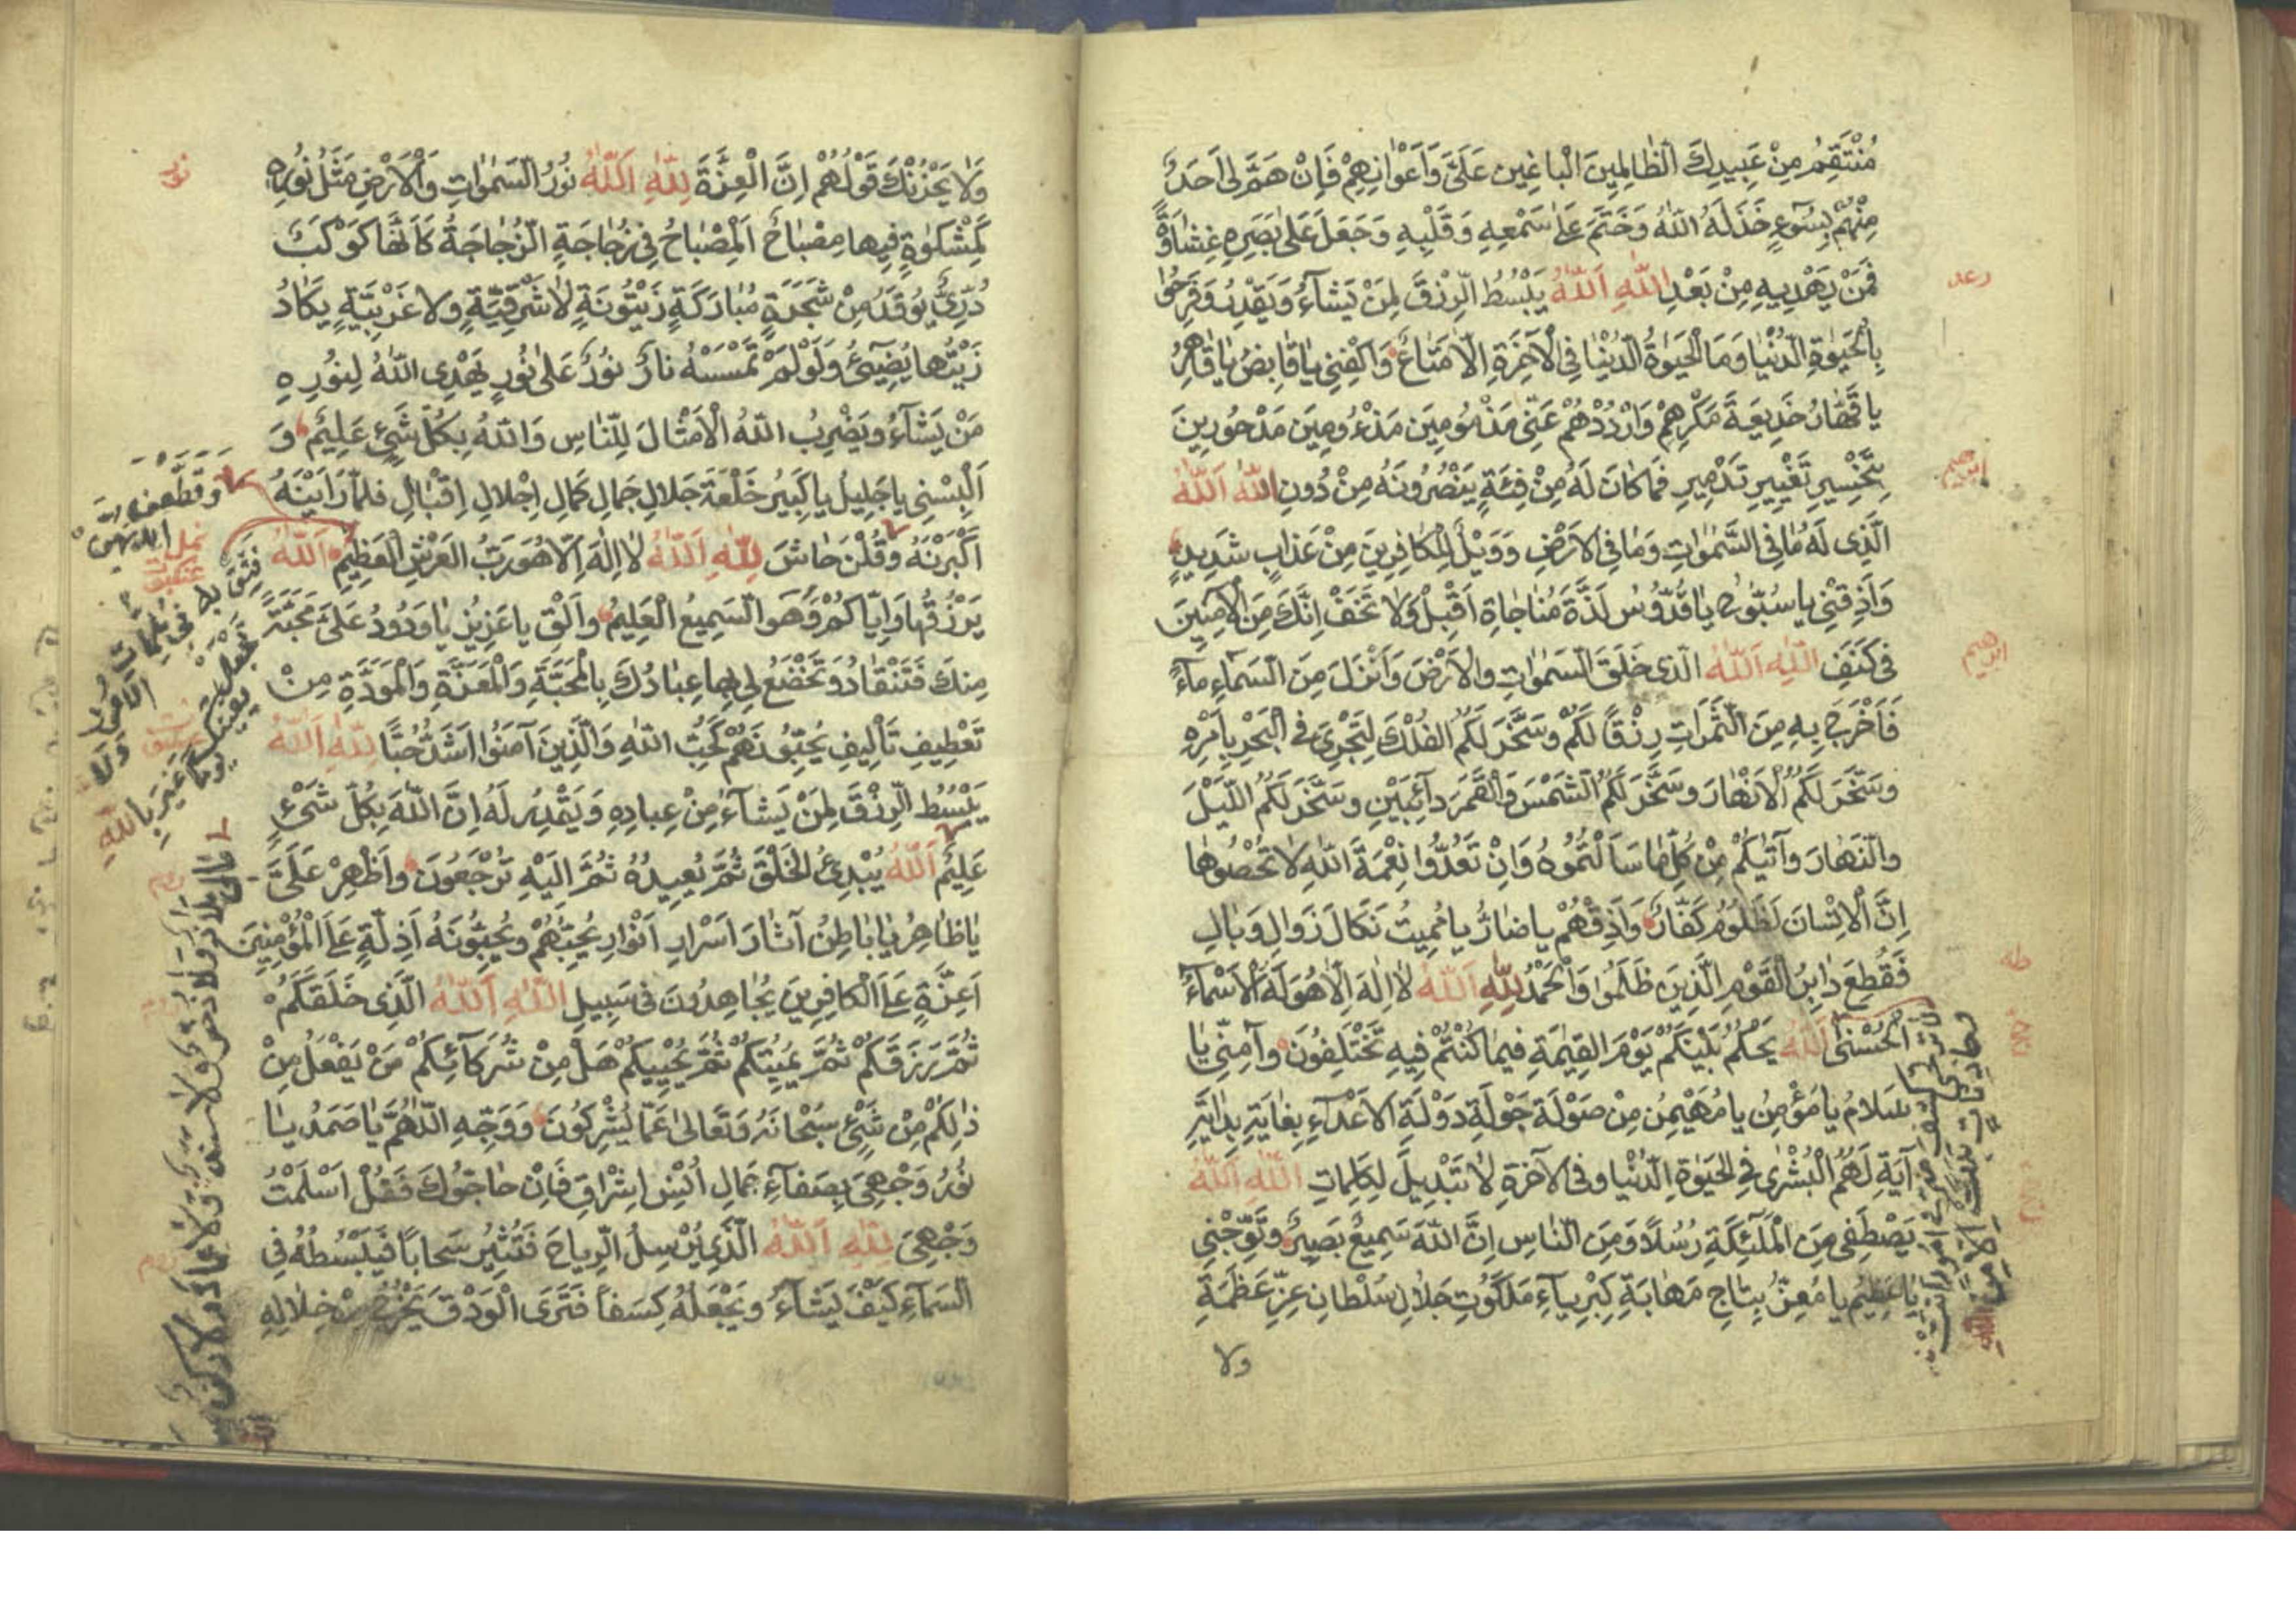 مُنْتَقِمُ مِنْ عَبِيدِكَ الظَّالِمِينَ الْبَاغِينَ عَلَيَّ وَاَعْوَانِهِمْ فَاِنْ هَمَّ لِى اَحَدٌ
مِنْهُمْ بِسُوءٍ خَذَلَهُ اللّٰهُ وَخَتَمَ عَلٰى سَمْعِهِ وَقَلْبِهِ وَجَعَلَ عَلٰى بَصَرِهِ غِشَاوَةً
فَمَنْ يَهْدِيهِ مِنْ بَعْدِ اللّٰهِ اَللّٰهُ يَبْسُطُ الرِّزْقَ لِمَنْ يَشَآءُ وَيَقْدِرُ وَفَرِحُوا
بِالْحَيٰوةِ الدُّنْيَا وَمَا الْحَيٰوةُ الدُّنْيَا فِى الْاٰخِرَةِ اِلَّا مَتَاعٌ وَاكْفِنِى يَا قَابِضُ يَا قَاهِرُ
يَا قَهَّارُ خَدِيعَةَ مَكْرِهِمْ وَارْدُدْهُمْ عَنِّى مَذْمُومِينَ مَذْءُومِينَ مَدْحُورِينَ
بِتَخْسِيرِ تَغْيِيرِ تَدْمِيرِ فَمَا كَانَ لَهُ مِنْ فِئَةٍ يَنْصُرُونَهُ مِنْ دُونِ اللّٰهِ اَللّٰهُ
الَّذِى لَهُ مَا فِى السَّمٰوَاتِ وَمَا فِى الْاَرْضِ وَوَيْلٌ لِلْكَافِرِينَ مِنْ عَذَابٍ شَدِيدٍ
وَاَذِقْنِى يَا سُبُّوحُ يَا قُدُّوسُ لَذَّةَ مُنَاجَاةِ اَقْبِلْ وَلَا تَخَفْ اِنَّكَ مِنَ الْاٰمِنِينَ
فِى كَنَفِ اللّٰهِ اَللّٰهُ الَّذِى خَلَقَ السَّمٰوَاتِ وَالْاَرْضَ وَاَنْزَلَ مِنَ السَّمَآءِ مَآءً
فَاَخْرَجَ بِهِ مِنَ الثَّمَرَاتِ رِزْقًا لَكُمْ وَسَخَّرَ لَكُمُ الْفُلْكَ لِتَجْرِىَ فِى الْبَحْرِ بِاَمْرِهِ
وَسَخَّرَ لَكُمُ الْاَنْهَارَ وَسَخَّرَ لَكُمُ الشَّمْسَ وَالْقَمَرَ دَآئِبَيْنِ وَسَخَّرَ لَكُمُ اللَّيْلَ
وَالنَّهَارَ وَاٰتٰيكُمْ مِنْ كُلِّ مَا سَاَلْتُمُوهُ وَاِنْ تَعُدُّوا نِعْمَةَ اللّٰهِ لَا تُحْصُوهَا
اِنَّ الْاِنْسَانَ لَظَلُومٌ كَفَّارٌ وَاَذِقْهُمْ يَا ضَارُّ يَا مُمِيتُ نَكَالَ زَوَالِ وَبَالِ
فَقُطِعَ دَابِرُ الْقَوْمِ الَّذِينَ ظَلَمُوا وَالْحَمْدُ لِلّٰهِ اَللّٰهُ لَا اِلٰهَ اِلَّا هُوَ لَهُ الْاَسْمَآءُ
الْحُسْنٰى اَللّٰهُ يَحْكُمُ بَيْنَكُمْ يَوْمَ الْقِيٰمَةِ فِيمَا كُنْتُمْ فِيهِ تَخْتَلِفُونَ وَاٰمِنِّى يَا
سَلَامُ يَا مُؤْمِنُ يَا مُهَيْمِنُ مِنْ صَوْلَةِ جَوْلَةِ دَوْلَةِ الْاَعْدَآءِ بِغَايَةِ بِدَايَةِ
اٰيَةِ لَهُمُ الْبُشْرٰى فِى الْحَيٰوةِ الدُّنْيَا وَفِى الْاٰخِرَةِ لَا تَبْدِيلَ لِكَلِمَاتِ اللّٰهِ اَللّٰهُ
يَصْطَفِى مِنَ الْمَلٰٓئِكَةِ رُسُلًا وَمِنَ النَّاسِ اِنَّ اللّٰهَ سَمِيعٌ بَصِيرٌ وَتَوِّجْنِى
يَا عَظِيمُ يَا مُعِزُّ بِتَاجِ مَهَابَةِ كِبْرِيَآءِ مَلَكُوتِ جَلَالِ سُلْطَانِ عِزِّ عَظَمَةِ
ولا
رعد
ابرهيم
ابرهيم
طه
وَلَا يَحْزُنْكَ قَوْلُهُمْ اِنَّ الْعِزَّةَ لِلّٰهِ اَللّٰهُ نُورُ السَّمٰوَاتِ وَالْاَرْضِ مَثَلُ نُورِهِ
كَمِشْكٰوةٍ فِيهَا مِصْبَاحٌ اَلْمِصْبَاحُ فِى زُجَاجَةٍ الزُّجَاجَةُ كَاَنَّهَا كَوْكَبٌ
دُرِّىٌّ يُوقَدُ مِنْ شَجَرَةٍ مُبَارَكَةٍ زَيْتُونَةٍ لَا شَرْقِيَّةٍ وَلَا غَرْبِيَّةٍ يَكَادُ
زَيْتُهَا يُضِىٓءُ وَلَوْ لَمْ تَمْسَسْهُ نَارٌ نُورٌ عَلٰى نُورٍ يَهْدِى اللّٰهُ لِنُورِهِ
مَنْ يَشَآءُ وَيَضْرِبُ اللّٰهُ الْاَمْثَالَ لِلنَّاسِ وَاللّٰهُ بِكُلِّ شَىْءٍ عَلِيمٌ وَ
اَلْبِسْنِى يَا جَلِيلُ يَا كَبِيرُ خَلْعَةَ جَلَالِ جَمَالِ كَمَالِ اِجْلَالِ اِقْبَالِ فَلَمَّا رَاَيْنَهُ
اَكْبَرْنَهُ وَقُلْنَ حَاشَ لِلّٰهِ اَللّٰهُ لَا اِلٰهَ اِلَّا هُوَ رَبُّ الْعَرْشِ الْعَظِيمِ اَللّٰهُ
يَرْزُقُهَا وَاِيَّاكُمْ وَهُوَ السَّمِيعُ الْعَلِيمُ وَاَلْقِ يَا عَزِيزُ يَا وَدُودُ عَلَىَّ مَحَبَّةً
مِنكَ فَتَنْقَادُ وَتَخْضَعُ لِى بِهَا عِبَادُكَ بِالْمَحَبَّةِ وَالْمَعَزَّةِ وَالْمَوَدَّةِ مِنْ
تَعْطِيفِ تَأْلِيفِ يُحِبُّونَهُمْ كَحُبِّ اللّٰهِ وَالَّذِينَ اٰمَنُوا اَشَدُّ حُبًّا لِلّٰهِ اَللّٰهُ
يَبْسُطُ الرِّزْقَ لِمَنْ يَشَآءُ مِنْ عِبَادِهِ وَيَقْدِرُ لَهُ اِنَّ اللّٰهَ بِكُلِّ شَىْءٍ
عَلِيمٌ اَللّٰهُ يُبْدِئُ الْخَلْقَ ثُمَّ يُعِيدُهُ ثُمَّ اِلَيْهِ تُرْجَعُونَ وَاَظْهِرْ عَلَىَّ
يَا ظَاهِرُ يَا بَاطِنُ اٰثَارَ اَسْرَارِ اَنْوَارِ يُحِبُّهُمْ وَيُحِبُّونَهُ اَذِلَّةٍ عَلَى الْمُؤْمِنِينَ
اَعِزَّةٍ عَلَى الْكَافِرِينَ يُجَاهِدُونَ فِى سَبِيلِ اللّٰهِ اَللّٰهُ الَّذِى خَلَقَكُمْ
ثُمَّ رَزَقَكُمْ ثُمَّ يُمِيتُكُمْ ثُمَّ يُحْيِيكُمْ هَلْ مِنْ شُرَكَآئِكُمْ مَنْ يَفْعَلُ مِنْ
ذٰلِكُمْ مِنْ شَىْءٍ سُبْحَانَهُ وَتَعَالٰى عَمَّا يُشْرِكُونَ وَوَجِّهِ اللّٰهُمَّ يَا صَمَدُ يَا
نُورُ وَجْهِىَ بِصَفَآءِ جَمَالِ اُنْسِ اِشْرَاقِ فَاِنْ حَاجُّوكَ فَقُلْ اَسْلَمْتُ
وَجْهِىَ لِلّٰهِ اَللّٰهُ الَّذِى يُرْسِلُ الرِّيَاحَ فَتُثِيرُ سَحَابًا فَيَبْسُطُهُ فِى
السَّمَآءِ كَيْفَ يَشَآءُ وَيَجْعَلُهُ كِسَفًا فَتَرَى الْوَدْقَ يَخْرُجُ مِنْ خِلَالِهِ
نور
وقطعن ايديهن
نمل
عنكبوت
عنكبوت
روم
روم